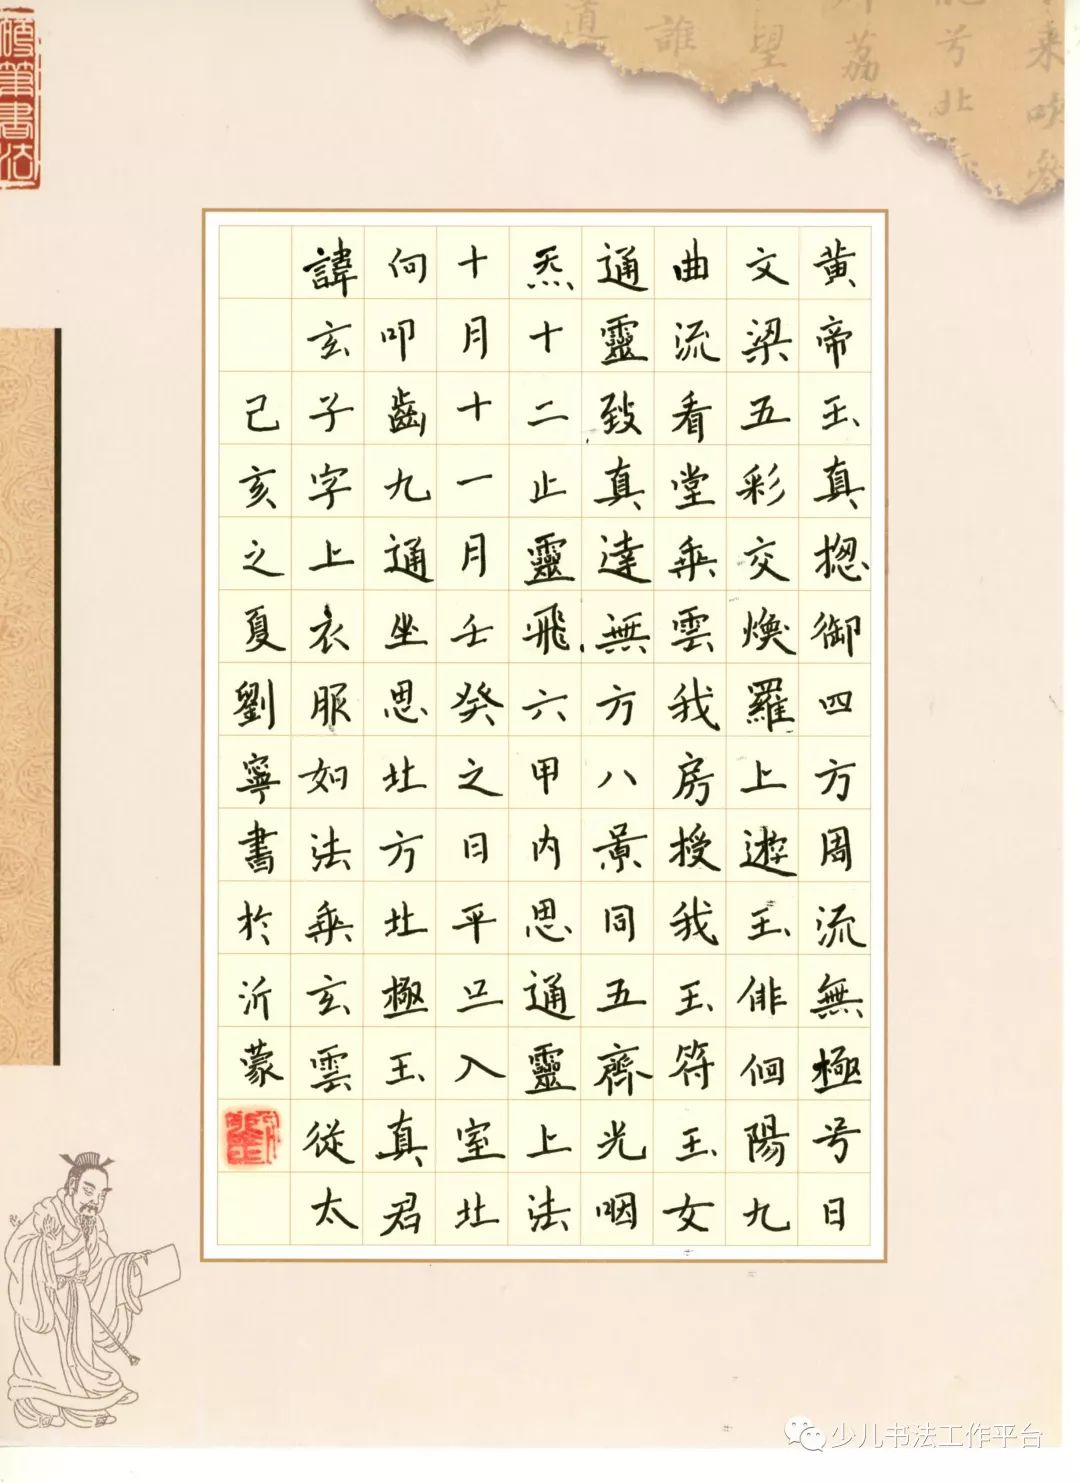 黄帝玉真揔御四方周流無極号曰
文梁五彩交煥羅上遊玉俳佪陽九
曲流看堂乘雲我房授我玉符玉女
通靈致真達無方八景同五齊光咽
炁十二止靈飛六甲内思通靈上法
十月十一月壬癸之日平旦入室北
向叩齒九通坐思北方北極玉真君
諱玄子字上衣服如法乘玄雲從太
己亥之夏劉寧書於沂蒙
硬筆書法
少儿书法工作平台